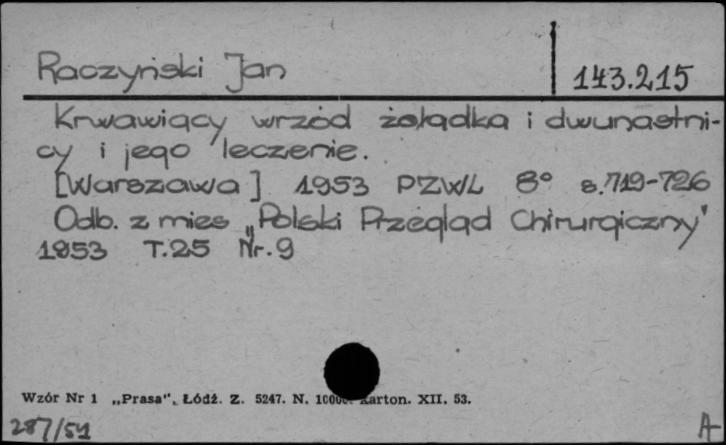 Raczyński Jan
143.215
Krwawiący wrzód żołądka i dwunastni-
cy i jego leczenie.
[Warszawa] 1953 PZWL 8° s.719-726
Odb. z mies „Polski Przegląd Chirurgiczny"
1953 T.25 Nr.9
Wzór Nr 1 „Prasa", Łódź. Z. 5247. N. 10000. Karton. XII. 53.
287/51 A-